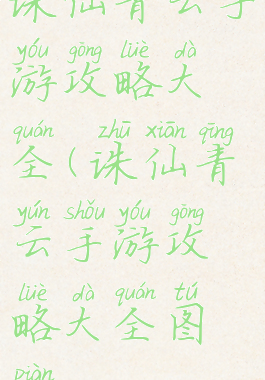 诛仙青云手
yóu gōng lüè dà
游攻略大
quán zhū xiān qīng
全(诛仙青
yún shǒu yóu gōng
云手游攻
lüè dà quán tú
略大全图
piàn